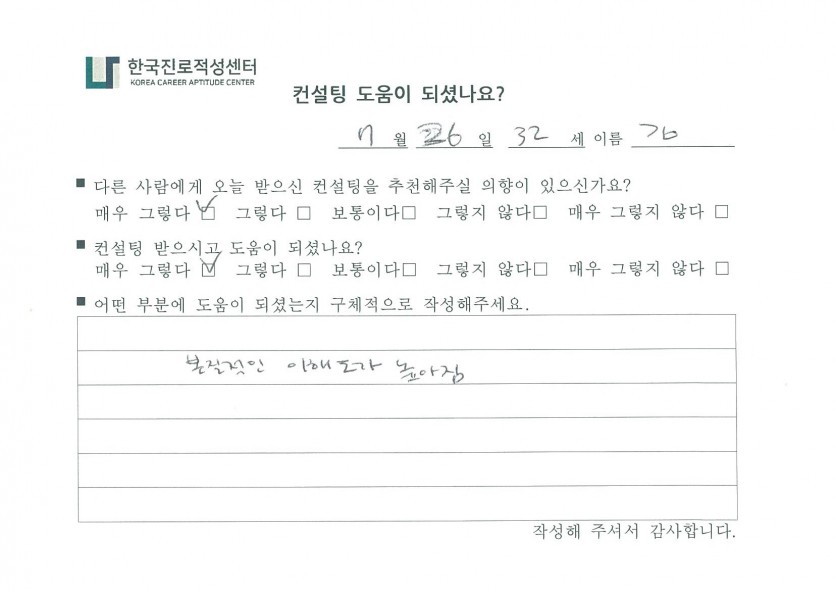 한국진로적성센터
KOREA CAREER APTITUDE CENTER
컨설팅 도움이 되셨나요?
7 월 26 일 32 세 이름
■ 다른 사람에게 오늘 받으신 컨설팅을 추천해주실 의향이 있으신가요?
매우 그렇다 ☑ 그렇다 □ 보통이다□ 그렇지 않다□ 매우 그렇지 않다 □
■ 컨설팅 받으시고 도움이 되셨나요?
매우 그렇다 ☑ 그렇다 □ 보통이다□ 그렇지 않다□ 매우 그렇지 않다 □
■ 어떤 부분에 도움이 되셨는지 구체적으로 작성해주세요.
본질적인 이해도가 높아짐
작성해 주셔서 감사합니다.